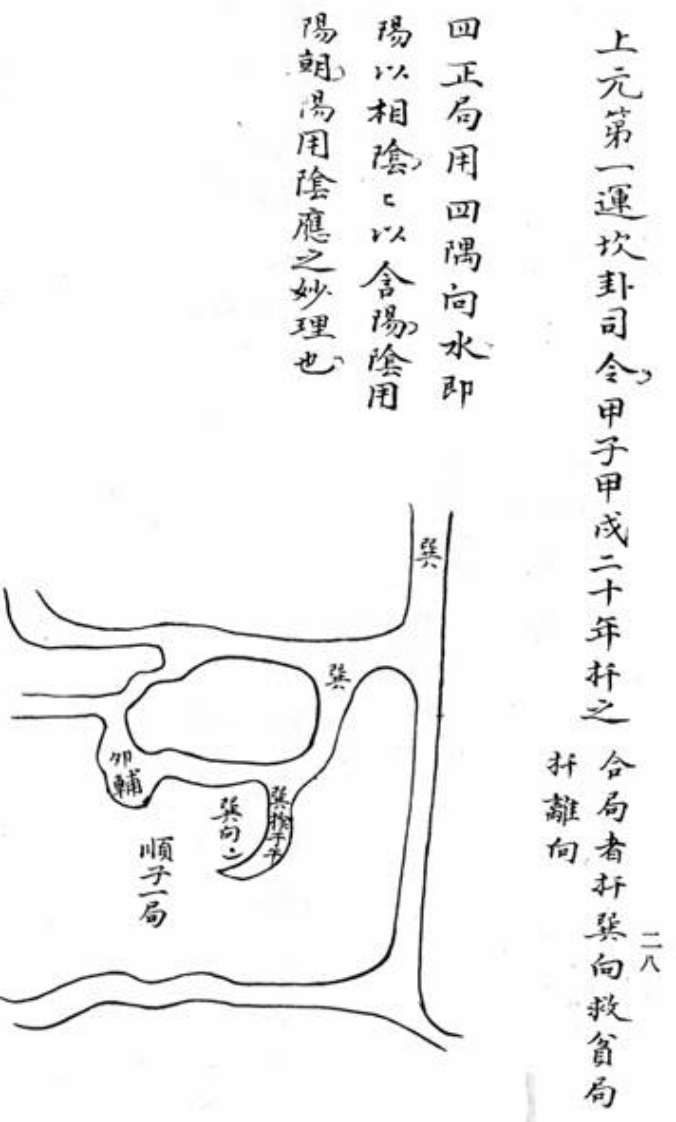 上元第一運坎卦司令甲子甲戌二十年扦之
合局者扦巽向救貧局
扦離向
二八
四正局用四隅向水即
陽以相陰〻以含陽陰用
陽朝陽用陰應之妙理也
巽
巽
卯輔
巽向
順子一局